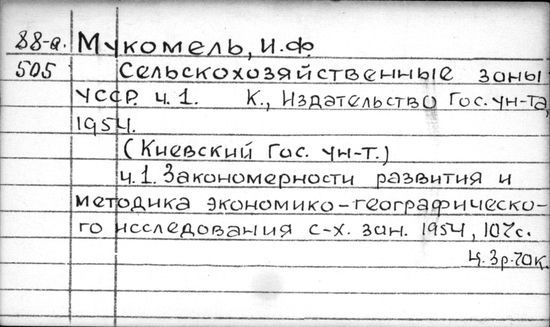 88-а. Мукомель, И.Ф
505 Сельскохозяйственные зоны
УССР. ч.1. К., Издательство Гос. ун-та,
1954.
(Киевский Гос. ун-т.)
ч.1. Закономерности развития и
методика экономико-географическо-
го исследования с-х. зон. 1954, 107с.
ц. 3р. 70к.